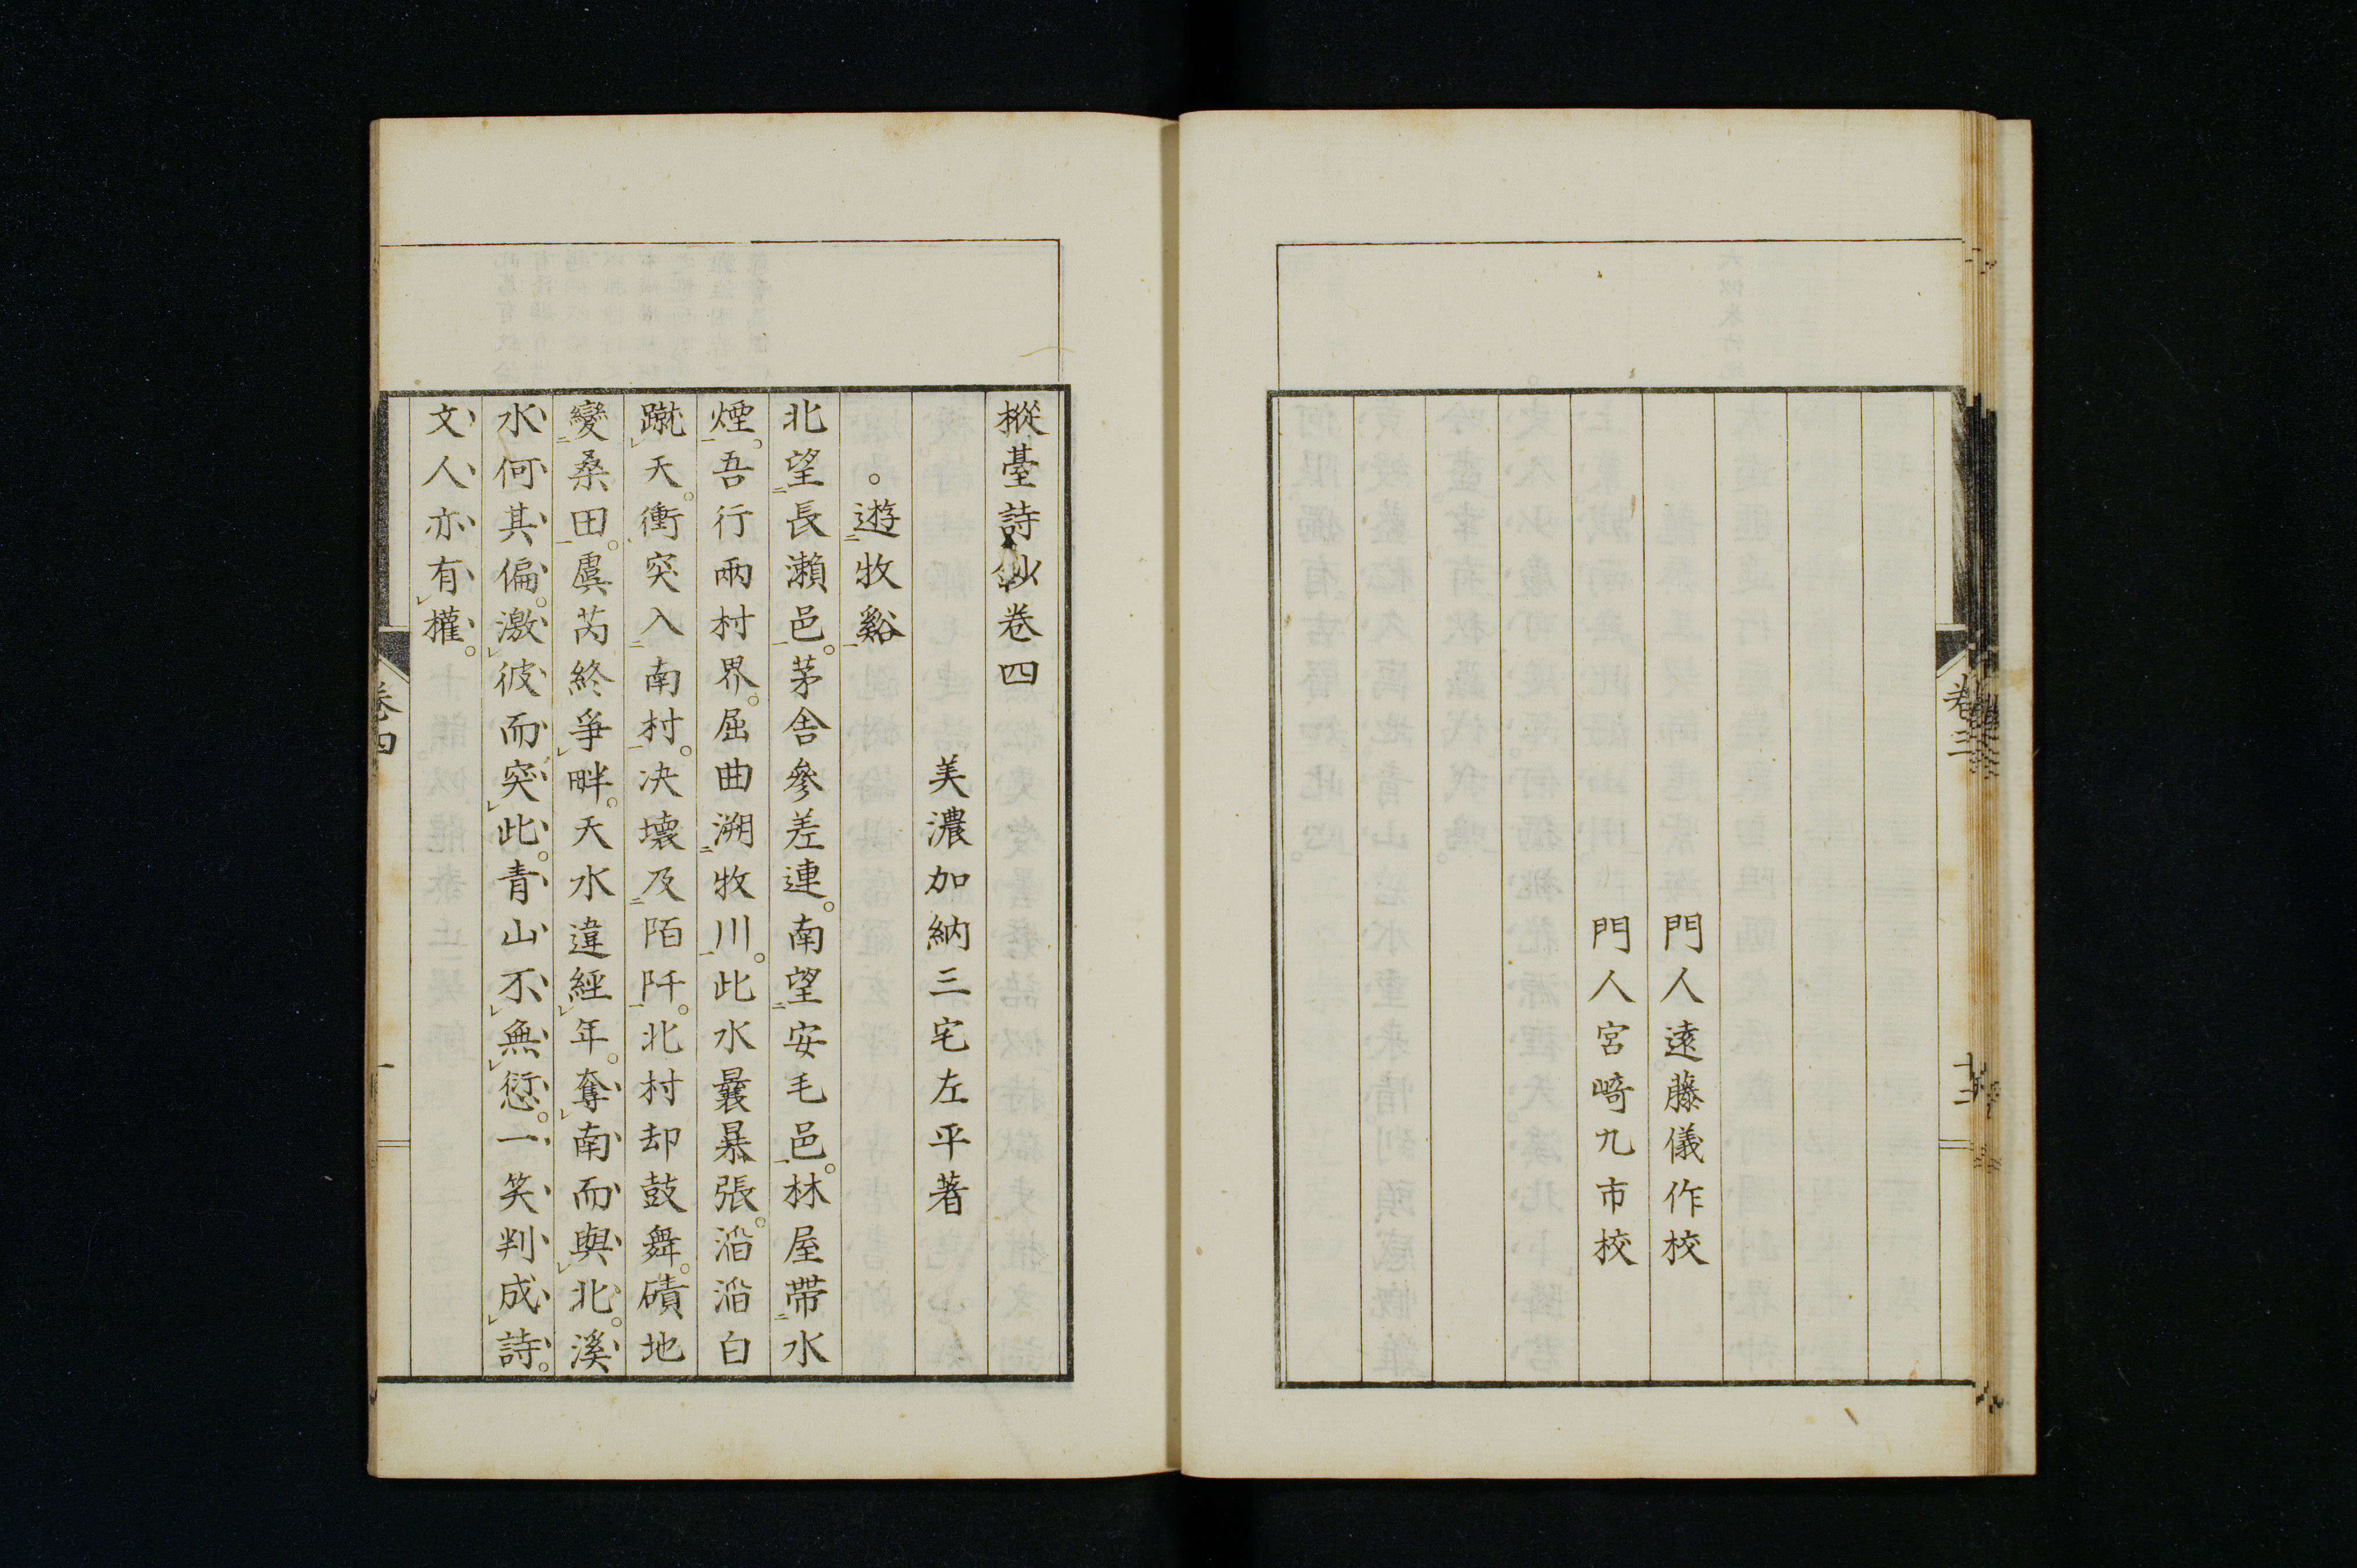 門人遠藤儀作校
門人宮崎九市校
卷三
十二
樅臺詩鈔卷四
美濃加納三宅左平著
。遊牧谿
北望長瀨邑。茅舎參差連。南望安毛邑。林屋帶水
煙。吾行兩村界。屈曲溯牧川。此水曩暴張。滔滔白
蹴天。衝突入南村。决壞及陌阡。北村却鼓舞。磧地
變桑田。虞芮終爭畔。天水違經年。奪南而與北。溪
水何其偏。激彼而突此。青山不無愆。一笑判成詩。
文人亦有權。
卷四
一